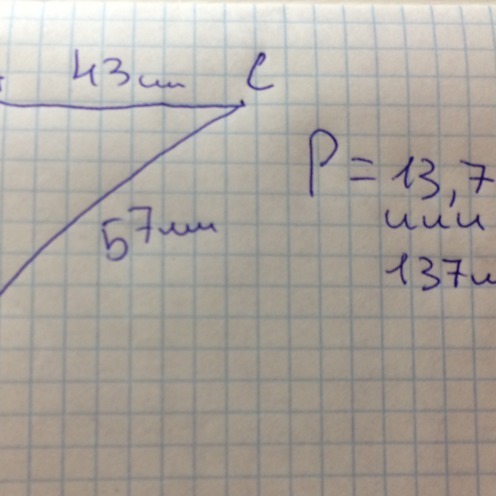 43 мм
C
57мм
P = 13,7
или
137м